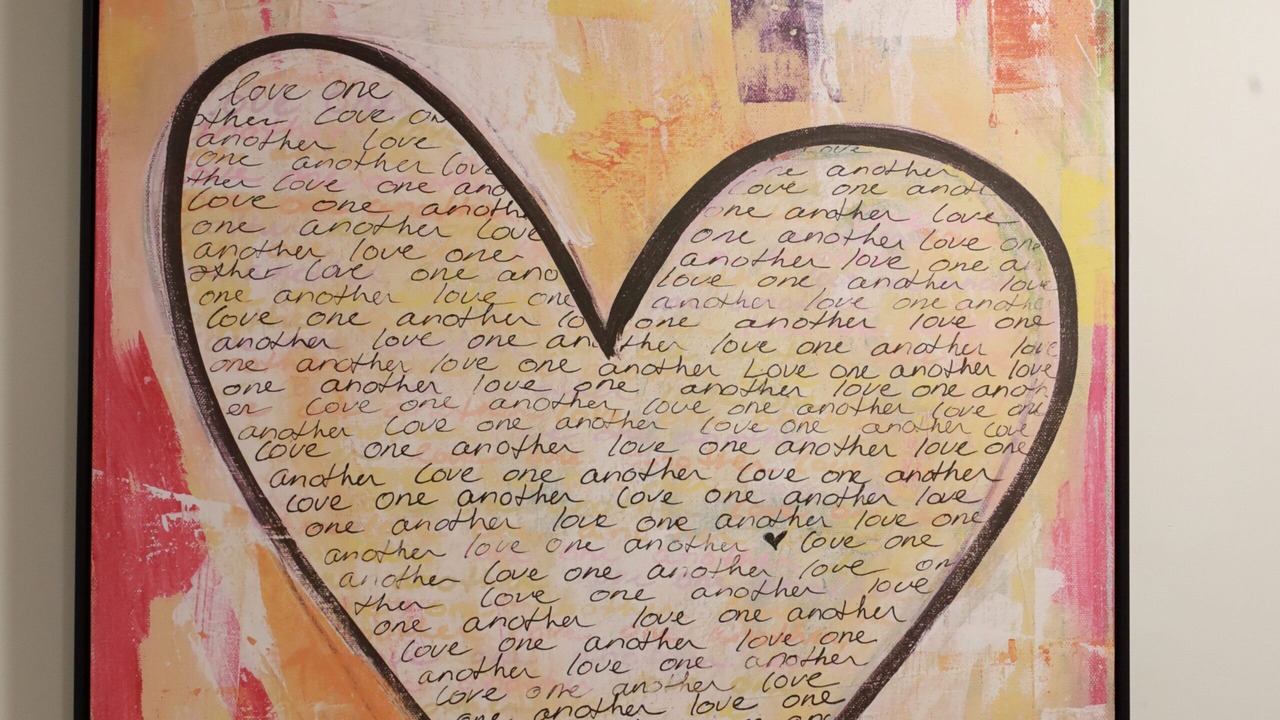 love one
other love on
another love
one another love
ther love one ano
love one anoth
one another love
another love one
other love one ano
one another love one
love one another lo
another love one an
love
one another
love one anoth
one another love
one another love one
another love one an
love one another love
another love one anothe
one another love one
ther love one another love
one another love one another Love one another love
one another love one another love one anoth
er love one another love one another love one
another love one another love one another love
love one another love one another love one
another love one another love one another
love one another love one another love
one another love one another love one
another love one another ♥ love one
another love one another love on
ther love one another love
one another love one another
love one another love one
another love one another
love one another love
one another love one